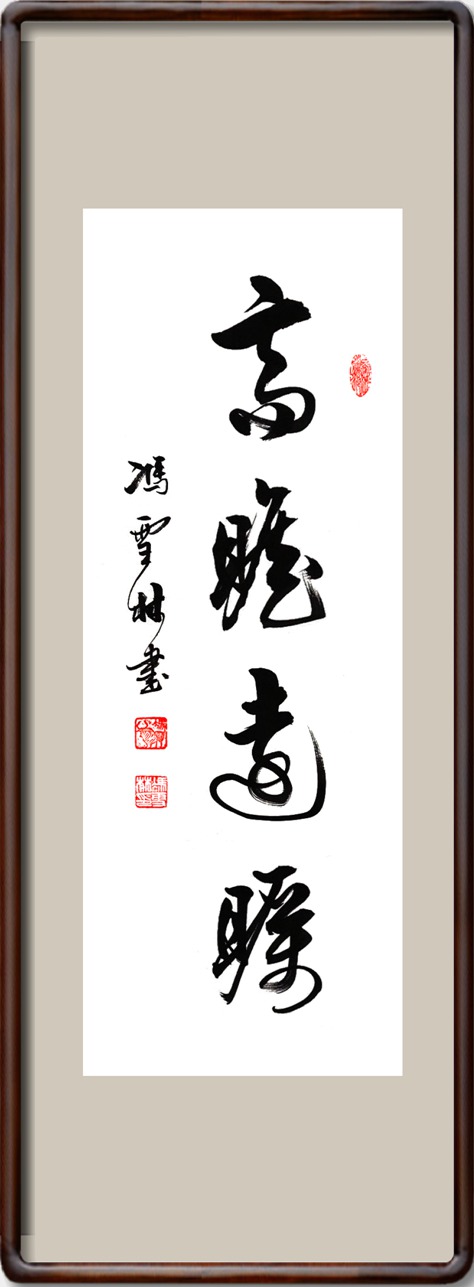 高瞻遠矚
馮雪林書